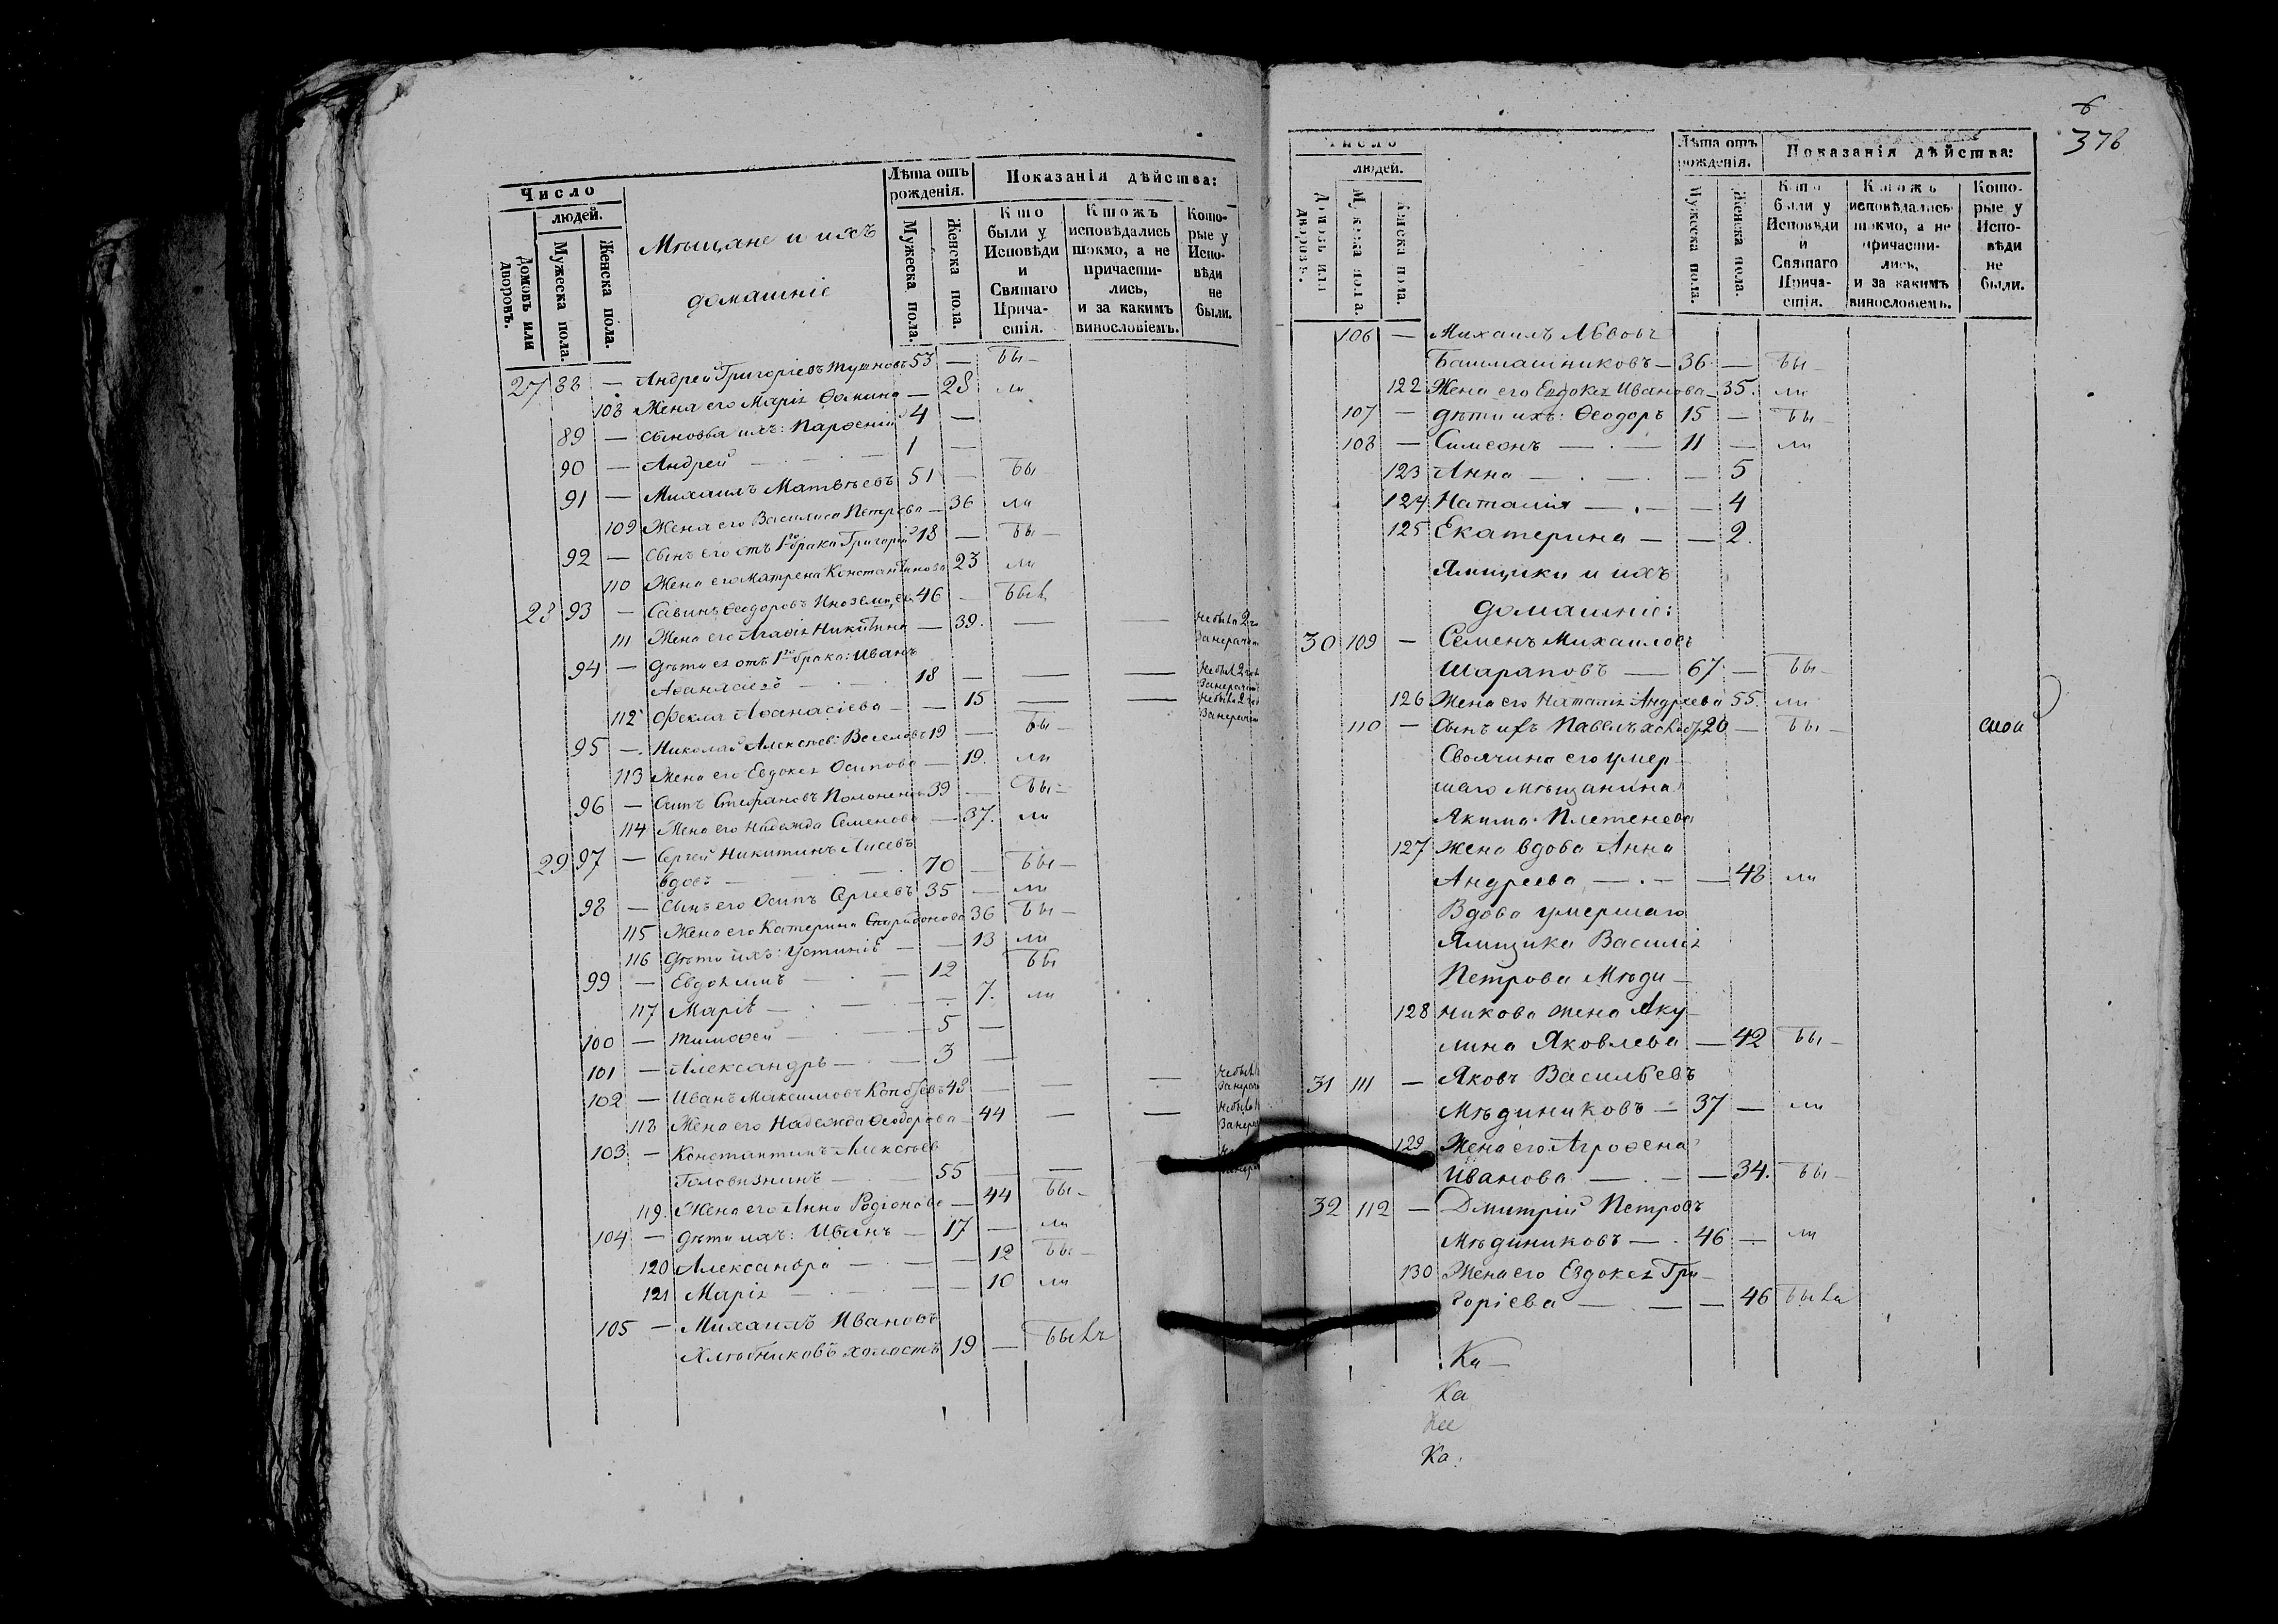 Число
людей.
Домовъ или дворовъ.
Мужеска пола.
Женска пола.
Мѣщане и ихъ
домашніе
Лѣта отъ рожденія.
Мужеска пола.
Женска пола.
Показанія дѣйства:
Кто были у Исповѣди и Святаго Причастія.
Ктожъ исповѣдались токмо, а не причастились, и за какимъ винословіемъ.
Которые у Исповѣди не были.
27 88 — Андрей Григоріевъ 53 — бы-
108 Жена его Марія Фомина — 28 ли
89 — Сыновья ихъ: Парфеній 4 —
90 — Андрей — 1 —
91 — Михаилъ Матвѣевъ 51 — бы
109 Жена его Василиса Петрова — 36 ли
92 — Сынъ его отъ 1го брака Григорій 18 — бы-
110 Жена его Матрена Константинова 23 ли
28 93 — Савинъ Феодоровъ 46 — былъ
111 Жена его Агафія Никитина — 39. — —
94 — Дѣти ея отъ 1го брака: Иванъ
Афанасіевъ — 18 — — —
112 Фекла Афанасіева — — 15 — —
95 — Николай Алексѣевъ Веселовъ 19 — бы-
113 Жена его Евдокея Осипова — 19. ли
96 — Осипъ Стефановъ 39 — бы-
114 Жена его Надежда Семенова — 37. ли
29 97 — Сергей Никитинъ Лисевъ
вдовъ — 70 — бы-
98 — Сынъ его Осипъ Сергеевъ 35 — ли
115 Жена его Катерина Спиридонова 36 бы-
116 Дѣти ихъ: Устинія — — 13 ли
99 — Евдокимъ — 12 бы
117 Марія — — 7. ли
100 — Тимофей — 5 —
101 — Александръ — 3 —
102 — Иванъ Максимовъ 48 — — —
118 Жена его Надежда Феодорова — 44 — —
103 — Константинъ Алексѣевъ
Головизнинъ — 55 — —
119. Жена его Анна Родіонова — 44 бы-
104 — Дѣти ихъ: Иванъ — 17 — ли
120 Александра — — 12 бы-
121 Марія — — 10 ли
105 — Михаилъ Ивановъ
Хлѣбниковъ холостъ 19 — былъ
6
378
Число
людей.
Домовъ или дворовъ.
Мужеска пола.
Женска пола.
Лѣта отъ рожденія.
Мужеска пола.
Женска пола.
Показанія дѣйства:
Кто были у Исповѣди и Святаго Причастія.
Ктожъ исповѣдались токмо, а не причастились, и за какимъ винословіемъ.
Которые у Исповѣди не были.
106 — Михаилъ Львовъ
Башмашниковъ — 36 — бы-
122 Жена его Евдокея Иванова — 35. ли
107 — Дѣти ихъ: Феодоръ 15 — бы-
108 — Симеонъ — 11 — ли
123 Анна — — 5
124 Наталія — — 4
125 Екатерина — — 2.
Ямщики и ихъ
домашніе:
30 109 — Семенъ Михаиловъ
Шараповъ — 67 — бы-
126 Жена его Наталія Андреева 55. ли
110 — Сынъ ихъ Павелъ 20 — бы-
Своячина его умер-
шаго мѣщанина
Якима Плетенева
127 жена вдова Анна
Андреева — — 48 ли
Вдова умершаго
Ямщика Василія
Петрова Мѣди-
128 никова жена Аку-
лина Яковлева — 42 бы-
31 111 — Яковъ Васильевъ
Мѣдиниковъ — 37 — ли
129 Жена его Агрофена
Иванова — — 34. бы-
32 112 — Дмитрій Петровъ
Мѣдиниковъ — 46 — ли
130 Жена его Евдокея Гри-
горіева — — 46 была
Ка-
Ка
Ка.